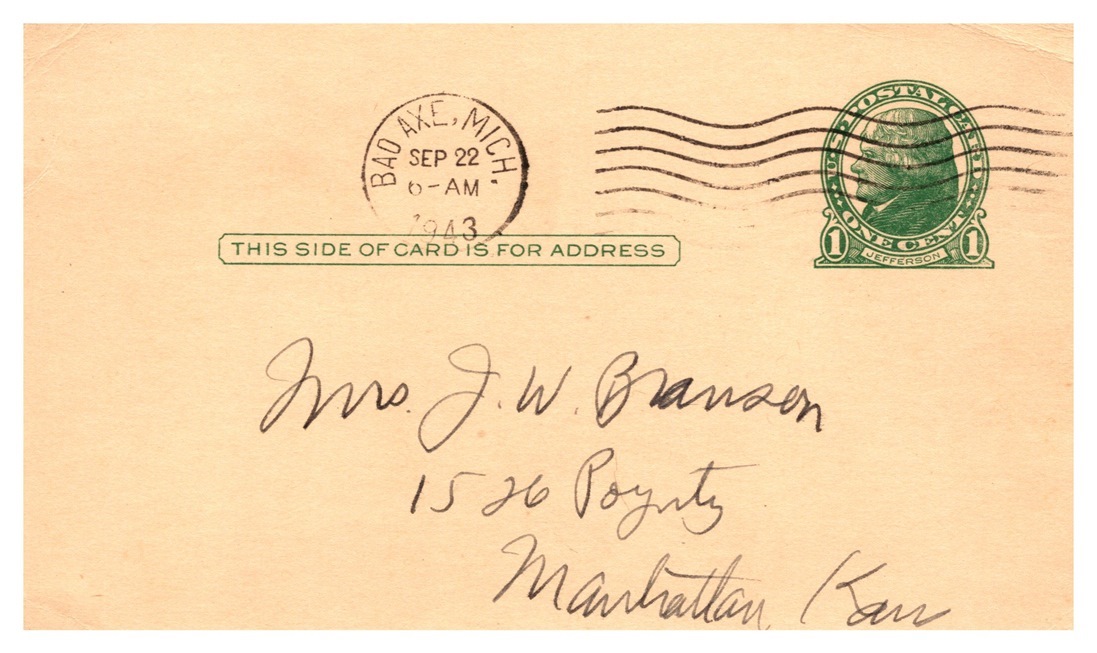 BAD AXE, MICH.
SEP 22
6-AM
1943
U.S. POSTAL CARD
ONE CENT
1 JEFFERSON 1
THIS SIDE OF CARD IS FOR ADDRESS
Mrs. J. W. Branson
1526 Poyntz
Manhattan Kans